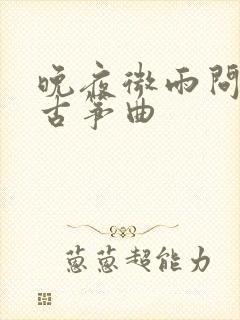 晚夜微雨問
古箏曲
蔥蔥超能力